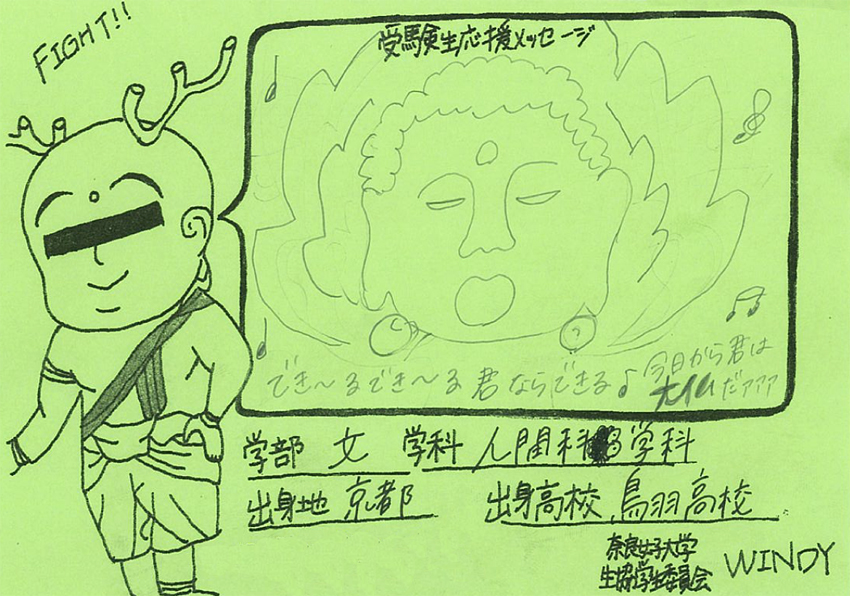 FIGHT!!
受験生応援メッセージ
でき～るでき～る君ならできる♪今日から君は
大仏だァァァ
学部 文 学科 人間科学科
出身地 京都 出身高校 鳥羽高校
奈良女子大学
生協学生委員会 WINDY